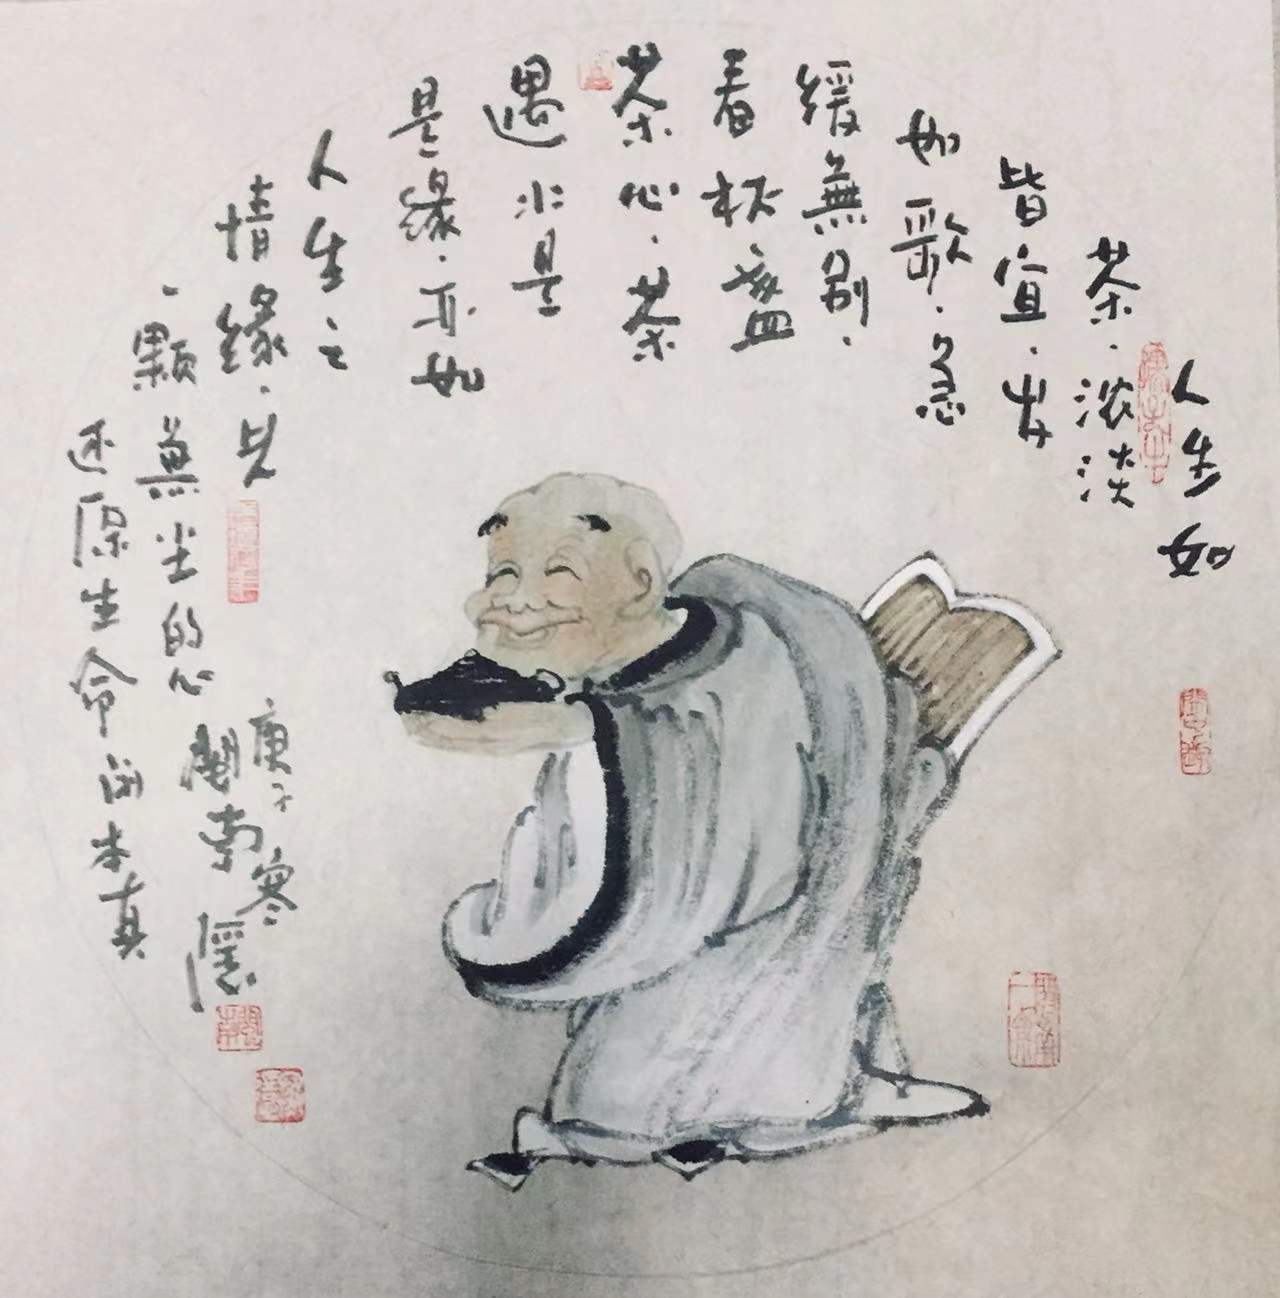 人生如
茶·浓淡
皆宜·岁月
如歌·急
緩無别·
看杯盏
茶心·茶
遇水是
是缘·亦如
人生之
情缘·以
一颗無尘的心
还原生命的本真
庚子寒